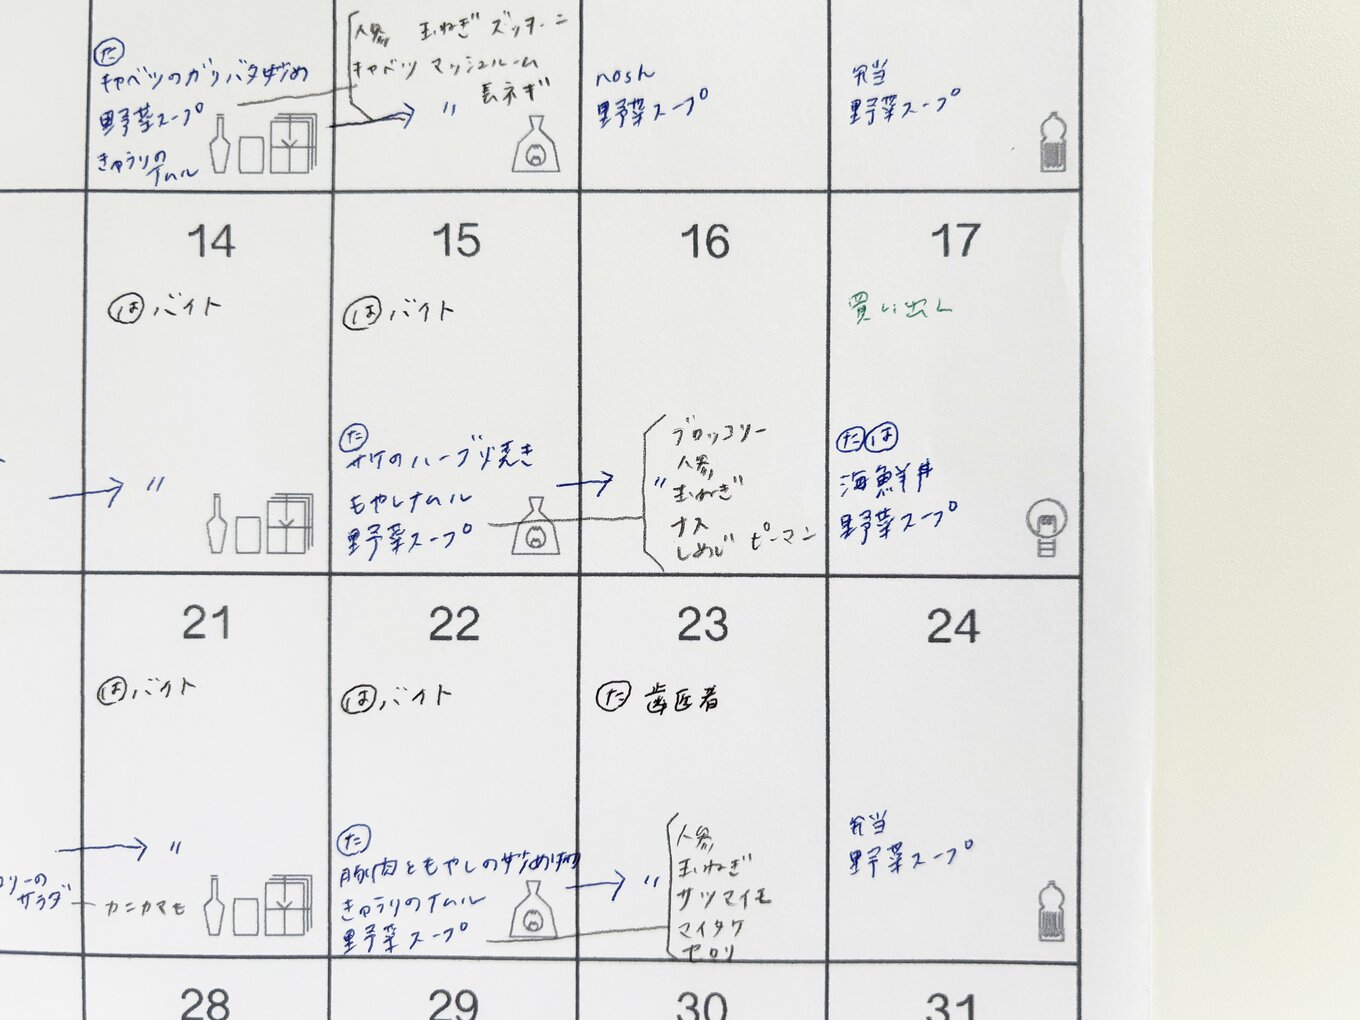 た
キャベツのガリバタ炒め
野菜スープ
きゅうりの
ナムル
人参 玉ねぎ ズッキーニ
キャベツ マッシュルーム
→ 〃 長ネギ
nosh
野菜スープ
弁当
野菜スープ
14
は バイト
→ 〃
15
は バイト
た
サケのハーブソルト焼き
もやしナムル
野菜スープ
16
→ 〃
ブロッコリー
人参
玉ねぎ
ナス
しめじ ピーマン
17
買い出し
た は
海鮮丼
野菜スープ
21
は バイト
→ 〃
コリーの
サラダ
カニカマも
22
は バイト
た
豚肉ともやしの炒め物
きゅうりのナムル
野菜スープ
23
た 歯医者
→ 〃
人参
玉ねぎ
サツマイモ
マイタケ
セロリ
24
弁当
野菜スープ
28
29
30
31